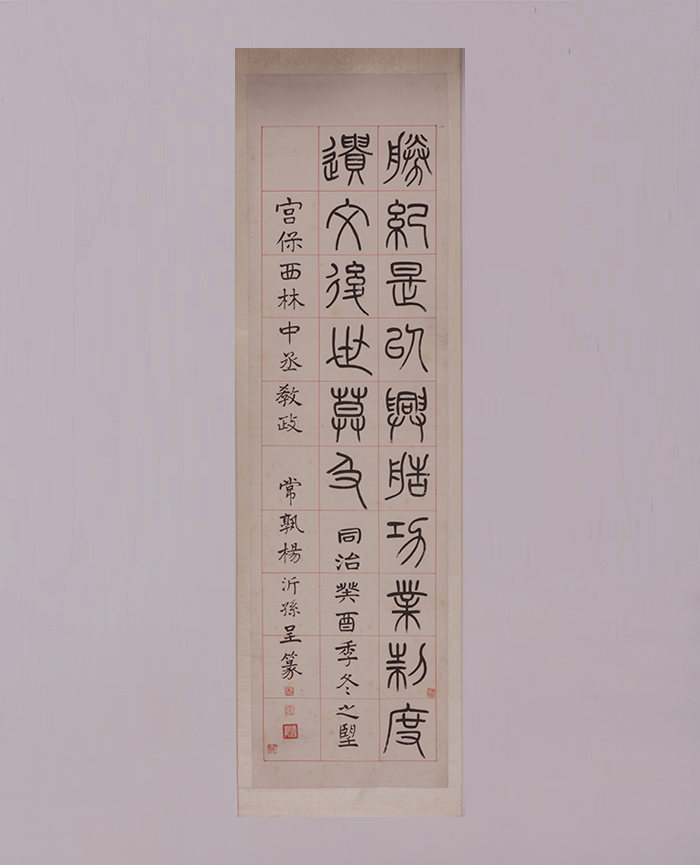 勝紀是以興艁功業制度
遺文後世莫及 同治癸酉季冬之朢
宮保西林中丞教政 常孰楊沂孫呈篆